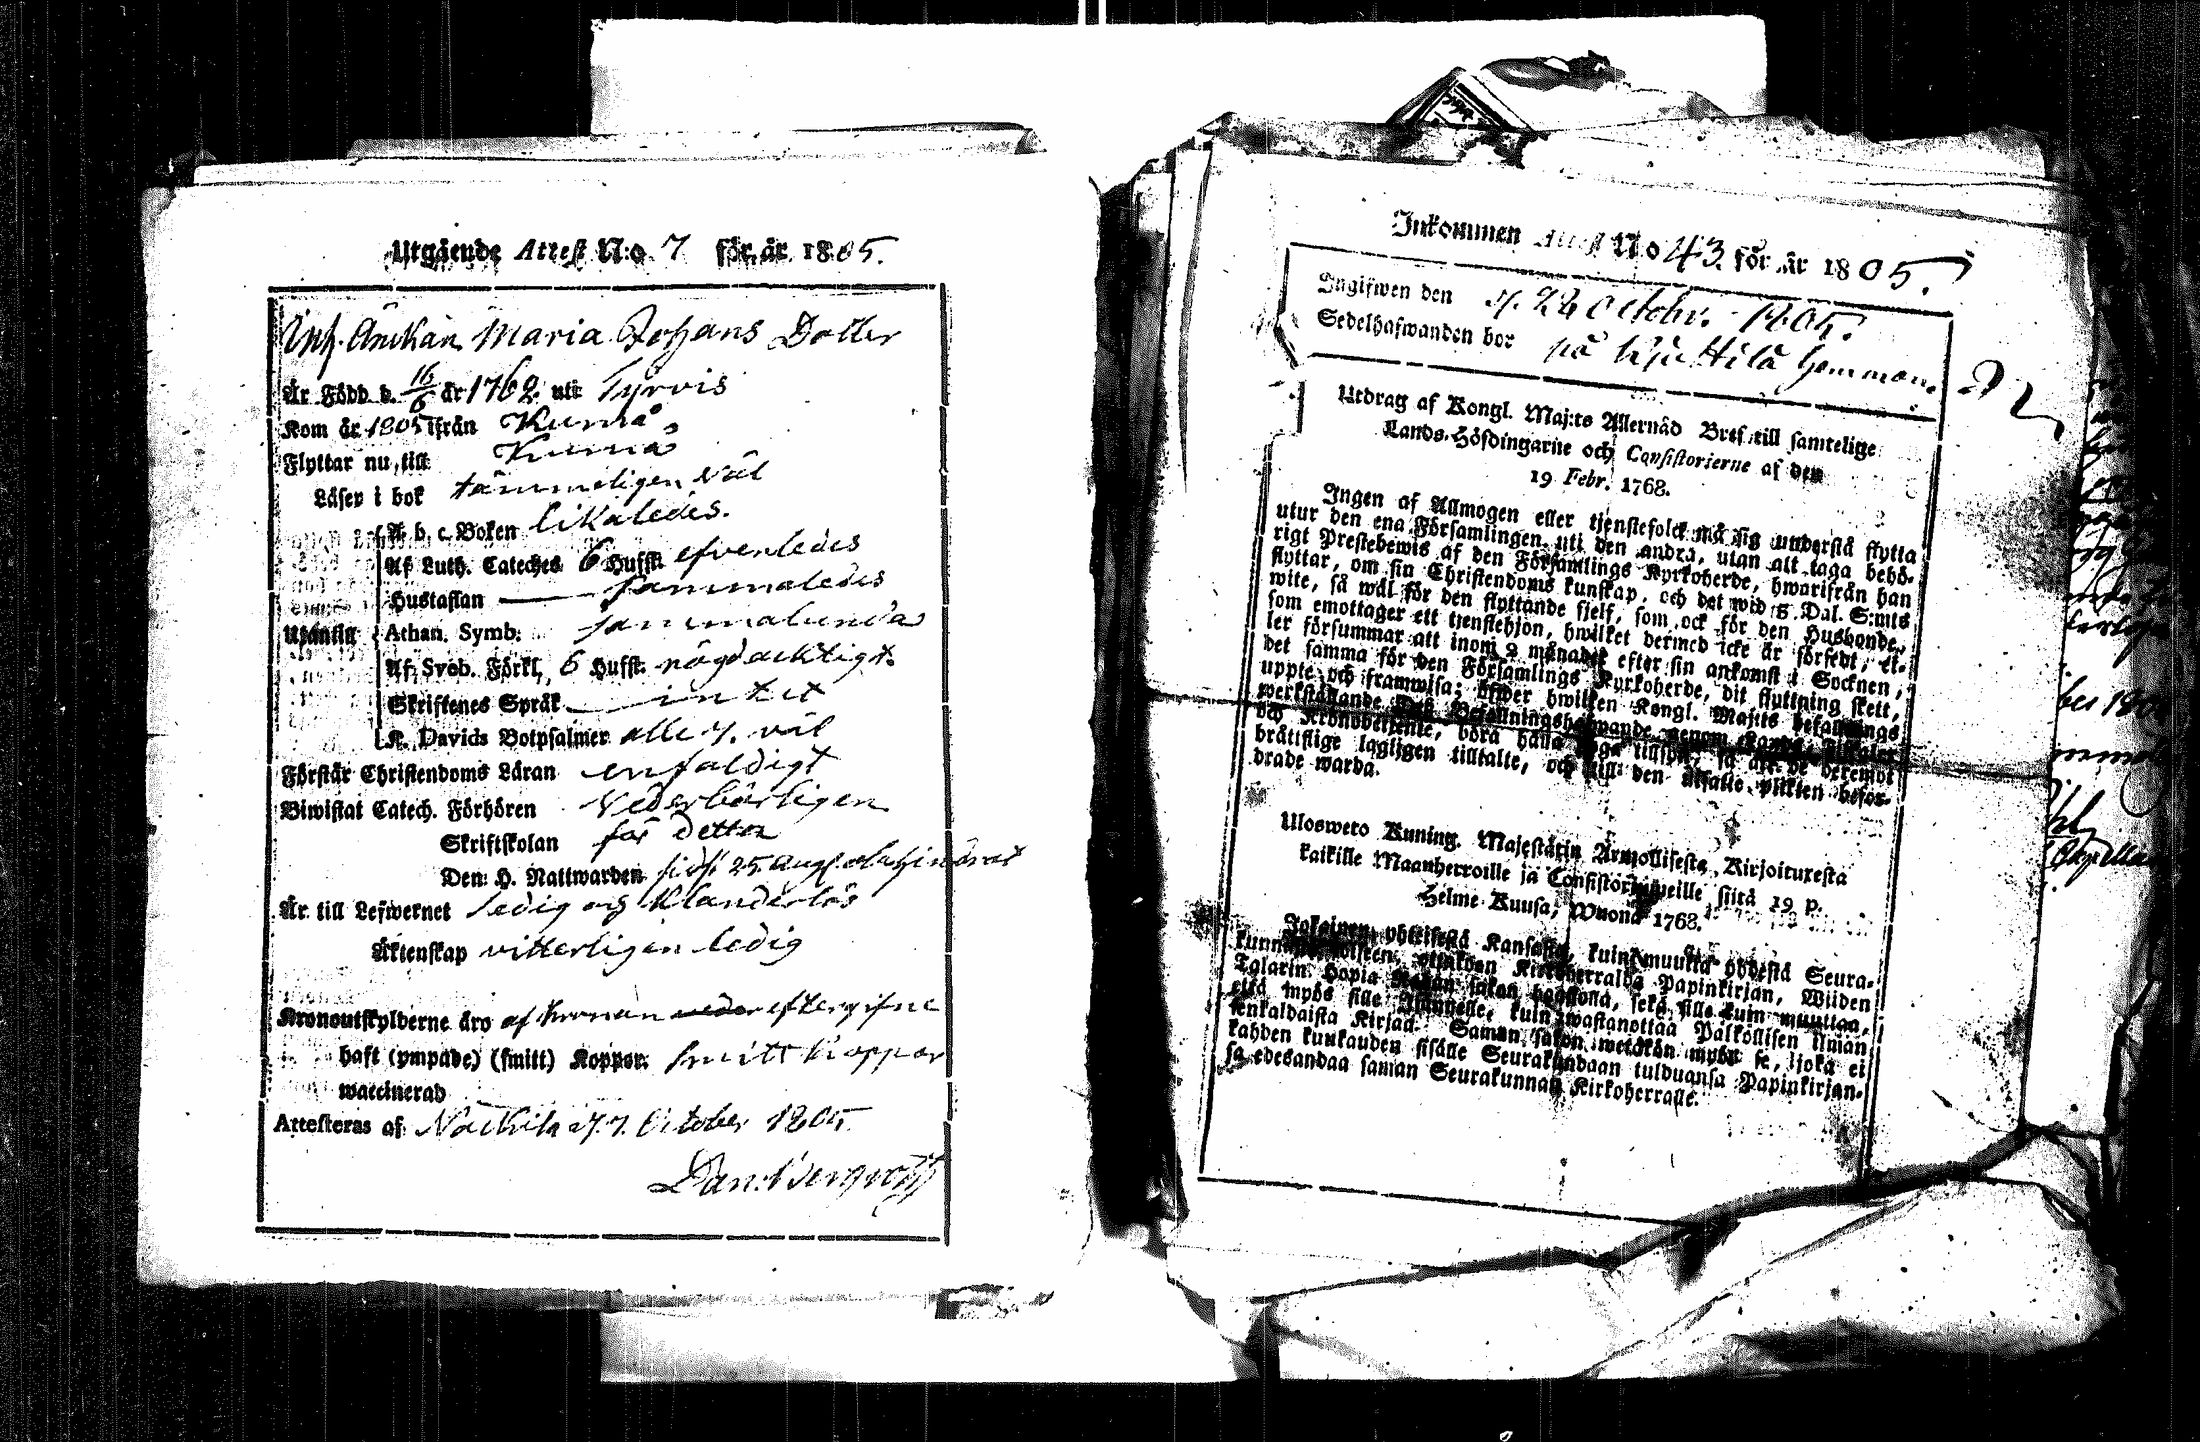 Utgående Attest N:o 7 för år 1805.
Inh. Änkan Maria Johans Dotter
Är Född d. 16/6 år 1762 uti Tyrvis
Kom år 1805 ifrån Kumå
Flyttar nu till Kumå
Läser i bok tämmeligen väl
A b c Boken likaledes.
Af Luth. Cateches 6 Hufst. efvenledes
Hustaflan sammaledes
Utantill Athan. Symb. sammalunda
Af Sveb. Förkl. 6 Hufst. nögdacktigt.
Skriftenes Språk intet
K. Davids Botpsalmer alle 7. väl
Förstår Christendoms Läran enfaldigt
Biwistat Catech. Förhören Vederbörligen
Skriftskolan för detta
Den H. Nattwarden sidst 25 Aug.
Är till Lefwernet ledig och Klanderlös
Äktenskap vitterligen ledig
Kronoutskylderne äro af Kronan eftergifne
haft (ympade) (smitt) Koppor. Smitt Koppor
waccinerad
Attesteras af Nackila d. 7. October 1805.
Dan: Bergroth
Inkommen Attest No 43. för år 1805.
Ingifwen den d. 28 Octobr. 1805.
Sedelhafwanden bor på Hemman.
Utdrag af Kongl. Maj:ts Allernåd Bref till samtelige
Lands-Höfdingarne och Consistorierne af den
19 Febr. 1768.
Ingen af Allmogen eller tjenstefolck må sig understå flytta
utur den ena Församlingen uti den andra, utan att taga behö-
rigt Prestebewis af den Församlings Kyrkoherde, hwarifrån han
flyttar, om sin Christendoms kunskap, och det wid 5 Dal. S:mts
wite, så wäl för den flyttande sjelf, som ock för den Husbonde,
som emottager ett tjenstehjon, hwilket dermed icke är försedt, el-
ler försummar att inom 2 månader efter sin ankomst i Socknen,
det samma för den Församlings Kyrkoherde, dit flyttning skett,
uppte och framwisa; öfwer hwilken Kongl. Maj:ts befallnings
werkställande Deß Befallningshafwande genom Lands-Fiskaler
och Kronobetjente, böra hålla noga tillsyn, så att de deremot
bråttslige lagligen tilltalte, och till den utsatte plikten befor-
drade warda.
Ulosweto Kuning. Majestätin Armollisesta Kirjoituxesta
kaikille Maanherroille ja Consistoriumeille siitä 19 p.
Helme-Kuusa, Wuona 1768.
Jokainen yhteisestä Kansasta, kuin muutta yhdestä Seura-
kunnasta toiseen, ottakoon Kirkoherralda Papinkirjan, Wiiden
Talarin Hopia Rahan sakon haastolla, sekä sille kuin muuttaa,
että myös sille Isännelle, kuin wastanottaa Palkollisen ilman
senkaldaista Kirjaa. Saman sakon wetäkön myös se, joka ei
kahden kuukauden sisälle Seurakundaan tulduansa Papinkirjan-
sa edesandaa saman Seurakunnan Kirkoherralle.